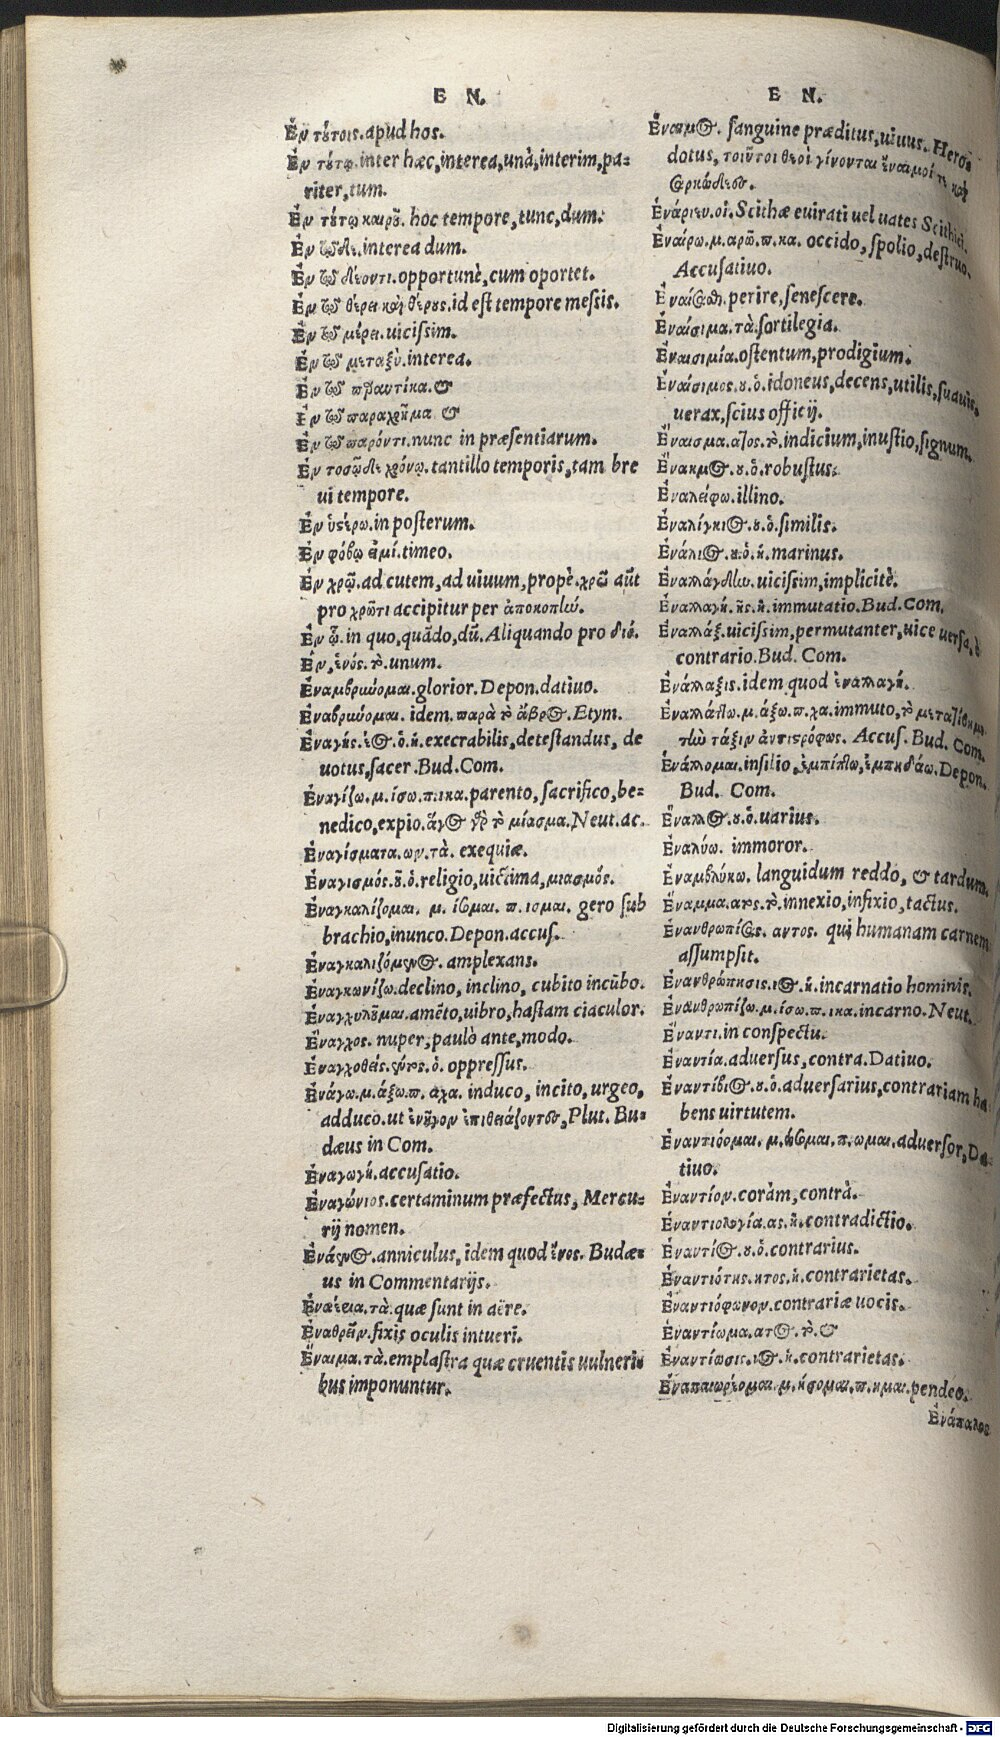 E N.
Ἐν τούτοις. apud hos.
Ἐν τούτῳ. inter hæc, interea, unà, interim, pa-
riter, tum.
Ἐν τούτῳ καιροῦ. hoc tempore, tunc, dum.
Ἐν τῷ δε. interea dum.
Ἐν τῷ δέοντι. opportunè, cum oportet.
Ἐν τῷ θέρει καὶ θέρους. id est tempore messis.
Ἐν τῷ μέρει. uicissim.
Ἐν τῷ μεταξύ. interea.
Ἐν τῷ παραυτίκα. &
Ἐν τῷ παραχρῆμα &
Ἐν τῷ παρόντι. nunc in præsentiarum.
Ἐν τοσῷδε χρόνῳ. tantillo temporis, tam bre
ui tempore.
Ἐν ὑστέρω. in posterum.
Ἐν φόβῳ εἰμί. timeo.
Ἐν χρῷ. ad cutem, ad uiuum, propè. χρῶ aũt
pro χρῶτι accipitur per ἀποκοπὴν.
Ἐν ᾧ. in quo, quãdo, dũ. Aliquando pro διό.
Ἐν, ἑνός. τὸ. unum.
Ἐναμβρύομαι. glorior. Depon. datiuo.
Ἐναβρύομαι. idem. παρὰ τὸ ἄβρος. Etym.
Ἐναγὴς. έος. ὁ. ἡ. execrabilis, detestandus, de
uotus, sacer. Bud. Com.
Ἐναγίζω. μ. ίσω. π. ικα. parento, sacrifico, be-
nedico, expio. ἅγος γὰρ τὸ μίασμα. Neut. ac.
Ἐναγίσματα. ων. τὰ. exequiæ.
Ἐναγισμός. οῦ. ὁ. religio, uictima, μιασμός.
Ἐναγκαλίζομαι. μ. ίσομαι. π. ισμαι. gero sub
brachio, inunco. Depon. accus.
Ἐναγκαλιζόμενος. amplexans.
Ἐναγκωνίζω. declino, inclino, cubito incũbo.
Ἐναγχυλοῦμαι. amẽto, uibro, hastam ciaculor.
Ἔναγχος. nuper, paulò ante, modo.
Ἐναγχοθείς. έντος. ὁ. oppressus.
Ἐνάγω. μ. άξω. π. αχα. induco, incito, urgeo,
adduco. ut ἐνῆγον ἐπιθειάζοντες, Plut. Bu-
dæus in Com.
Ἐναγωγή. accusatio.
Ἐναγώνιος. certaminum præfectus, Mercu-
rij nomen.
Ἐνάενος. anniculus, idem quod ἔνος. Budæ-
us in Commentarijs.
Ἐναέρια. τὰ. quæ sunt in aëre.
Ἐναθρεῖν. fixis oculis intueri.
Ἔναιμα. τὰ. emplastra quæ cruentis uulneri-
bus imponuntur.
E N.
Ἔναιμος. sanguine præditus, uiuus. Hero-
dotus, τοιοῦτοι θεοὶ γίνονται ἔναιμοί τε καὶ
σαρκώδεες.
Ἐνάριεν. οἱ. Scithæ euirati uel uates Scithici.
Ἐναίρω. μ. αρῶ. π. κα. occido, spolio, destruo.
Accusatiuo.
Ἐναίσαθη. perire, senescere.
Ἐναίσιμα. τὰ. sortilegia.
Ἐναισιμία. ostentum, prodigium.
Ἐναίσιμος. ου. ὁ. idoneus, decens, utilis, suauis,
uerax, scius officij.
Ἔναισμα. ατος. τὸ. indicium, inustio, signum.
Ἔνακμος. ου. ὁ. robustus.
Ἐναλείφω. illino.
Ἐναλίγκιος. ου. ὁ. similis.
Ἐνάλιος. ου. ὁ. ἡ. marinus.
Ἐναλλάγδην. uicissim, implicitè.
Ἐναλλαγή. ῆς. ἡ. immutatio. Bud. Com.
Ἐναλλάξ. uicissim, permutanter, uice uersa, è
contrario. Bud. Com.
Ἐνάλλαξις. idem quod ἐναλλαγή.
Ἐναλλάττω. μ. άξω. π. χα. immuto, τὸ μετατίθημι
τὴν τάξιν ἀντιστρόφως. Accus. Bud. Com.
Ἐνάλλομαι. insilio, ἐμπίπτω, ἐμπηδάω. Depon.
Bud. Com.
Ἔναλλος. ου. ὁ. uarius.
Ἐναλύω. immoror.
Ἐναμβλύκω. languidum reddo, & tardum.
Ἔναμμα. ατος. τὸ. innexio, infixio, tactus.
Ἐνανθρωπίσας. αντος. qui humanam carnem
assumpsit.
Ἐνανθρώπησις. ιος. ἡ. incarnatio hominis.
Ἐνανθρωπίζω. μ. ίσω. π. ικα. incarno. Neut.
Ἔναντι. in conspectu.
Ἐναντία. aduersus, contra. Datiuo.
Ἐναντίβιος. ου. ὁ. aduersarius, contrariam ha
bens uirtutem.
Ἐναντιόομαι. μ. ώσομαι. π. ωμαι. aduersor, Da-
tiuo.
Ἐναντίον. coràm, contrà.
Ἐναντιολογία. ας. ἡ. contradictio.
Ἐναντίος. ου. ὁ. contrarius.
Ἐναντιότης. ητος. ἡ. contrarietas.
Ἐναντιόφωνον. contrariæ uocis.
Ἐναντίωμα. ατος. τὸ. &
Ἐναντίωσις. ιος. ἡ. contrarietas.
Ἐναπαιωρέομαι. μ. ήσομαι. π. ημαι. pendeo.
Ἐνάπαλος
Digitalisierung gefördert durch die Deutsche Forschungsgemeinschaft - DFG